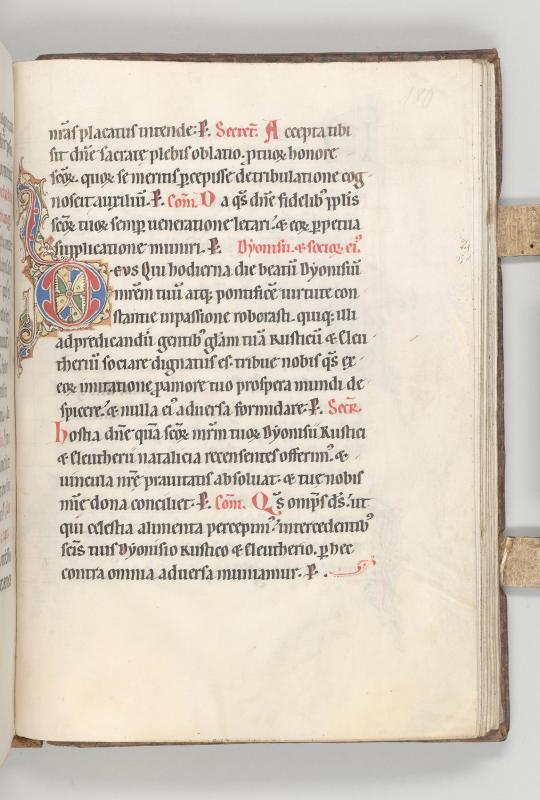 180
nr̄as placatus intende· P̶. Secret̄. Accepta tibi
sit dn̄e sacrate plebis oblatio· p̱ tuoꝝ honore
sc̄oꝝ· quoꝝ se meritis p̱cepisse de tribulatione cog
noscit auxiliū. P̶. Com̄. Da q̄s dn̄e fidelibꝰ pp̄lis
sc̄oꝝ tuoꝝ semꝑ ueneratione letari· & eoꝝ ꝑpetua
supplicatione muniri. P̶. Dyonisii. & socioꝝ eiꝰ.
Deus Qui hodierna die beatū Dyonisiū
mr̄em tuū atq; pontificē uirtute con
stantie in passione roborasti. quiq; illi
ad predicandū gentibꝰ gl̄am tuā Rusticū & Eleu
theriū sociare dignatus es· tribue nobis q̄s ex
eoꝝ imitatione ꝑ amore tuo prospera mundi de
spicere· & nulla eiꝰ aduersa formidare· P̶. Secr̄.
Hostia dn̄e quā sc̄oꝝ mr̄m tuoꝝ Dyonisii Rustici
& Eleutherii natalicia recensentes offerimꝰ· &
uincula nr̄e prauitatis absoluat· & tue nobis
mīe dona conciliet· P̶. Com̄. Qs̄ omps̄ ds̄· ut
qui celestia alimenta percepimꝰ· intercedentibꝰ
sc̄is tuis Dyonisio Rustico & Eleutherio· ꝑ hec
contra omnia aduersa muniamur· P̶.